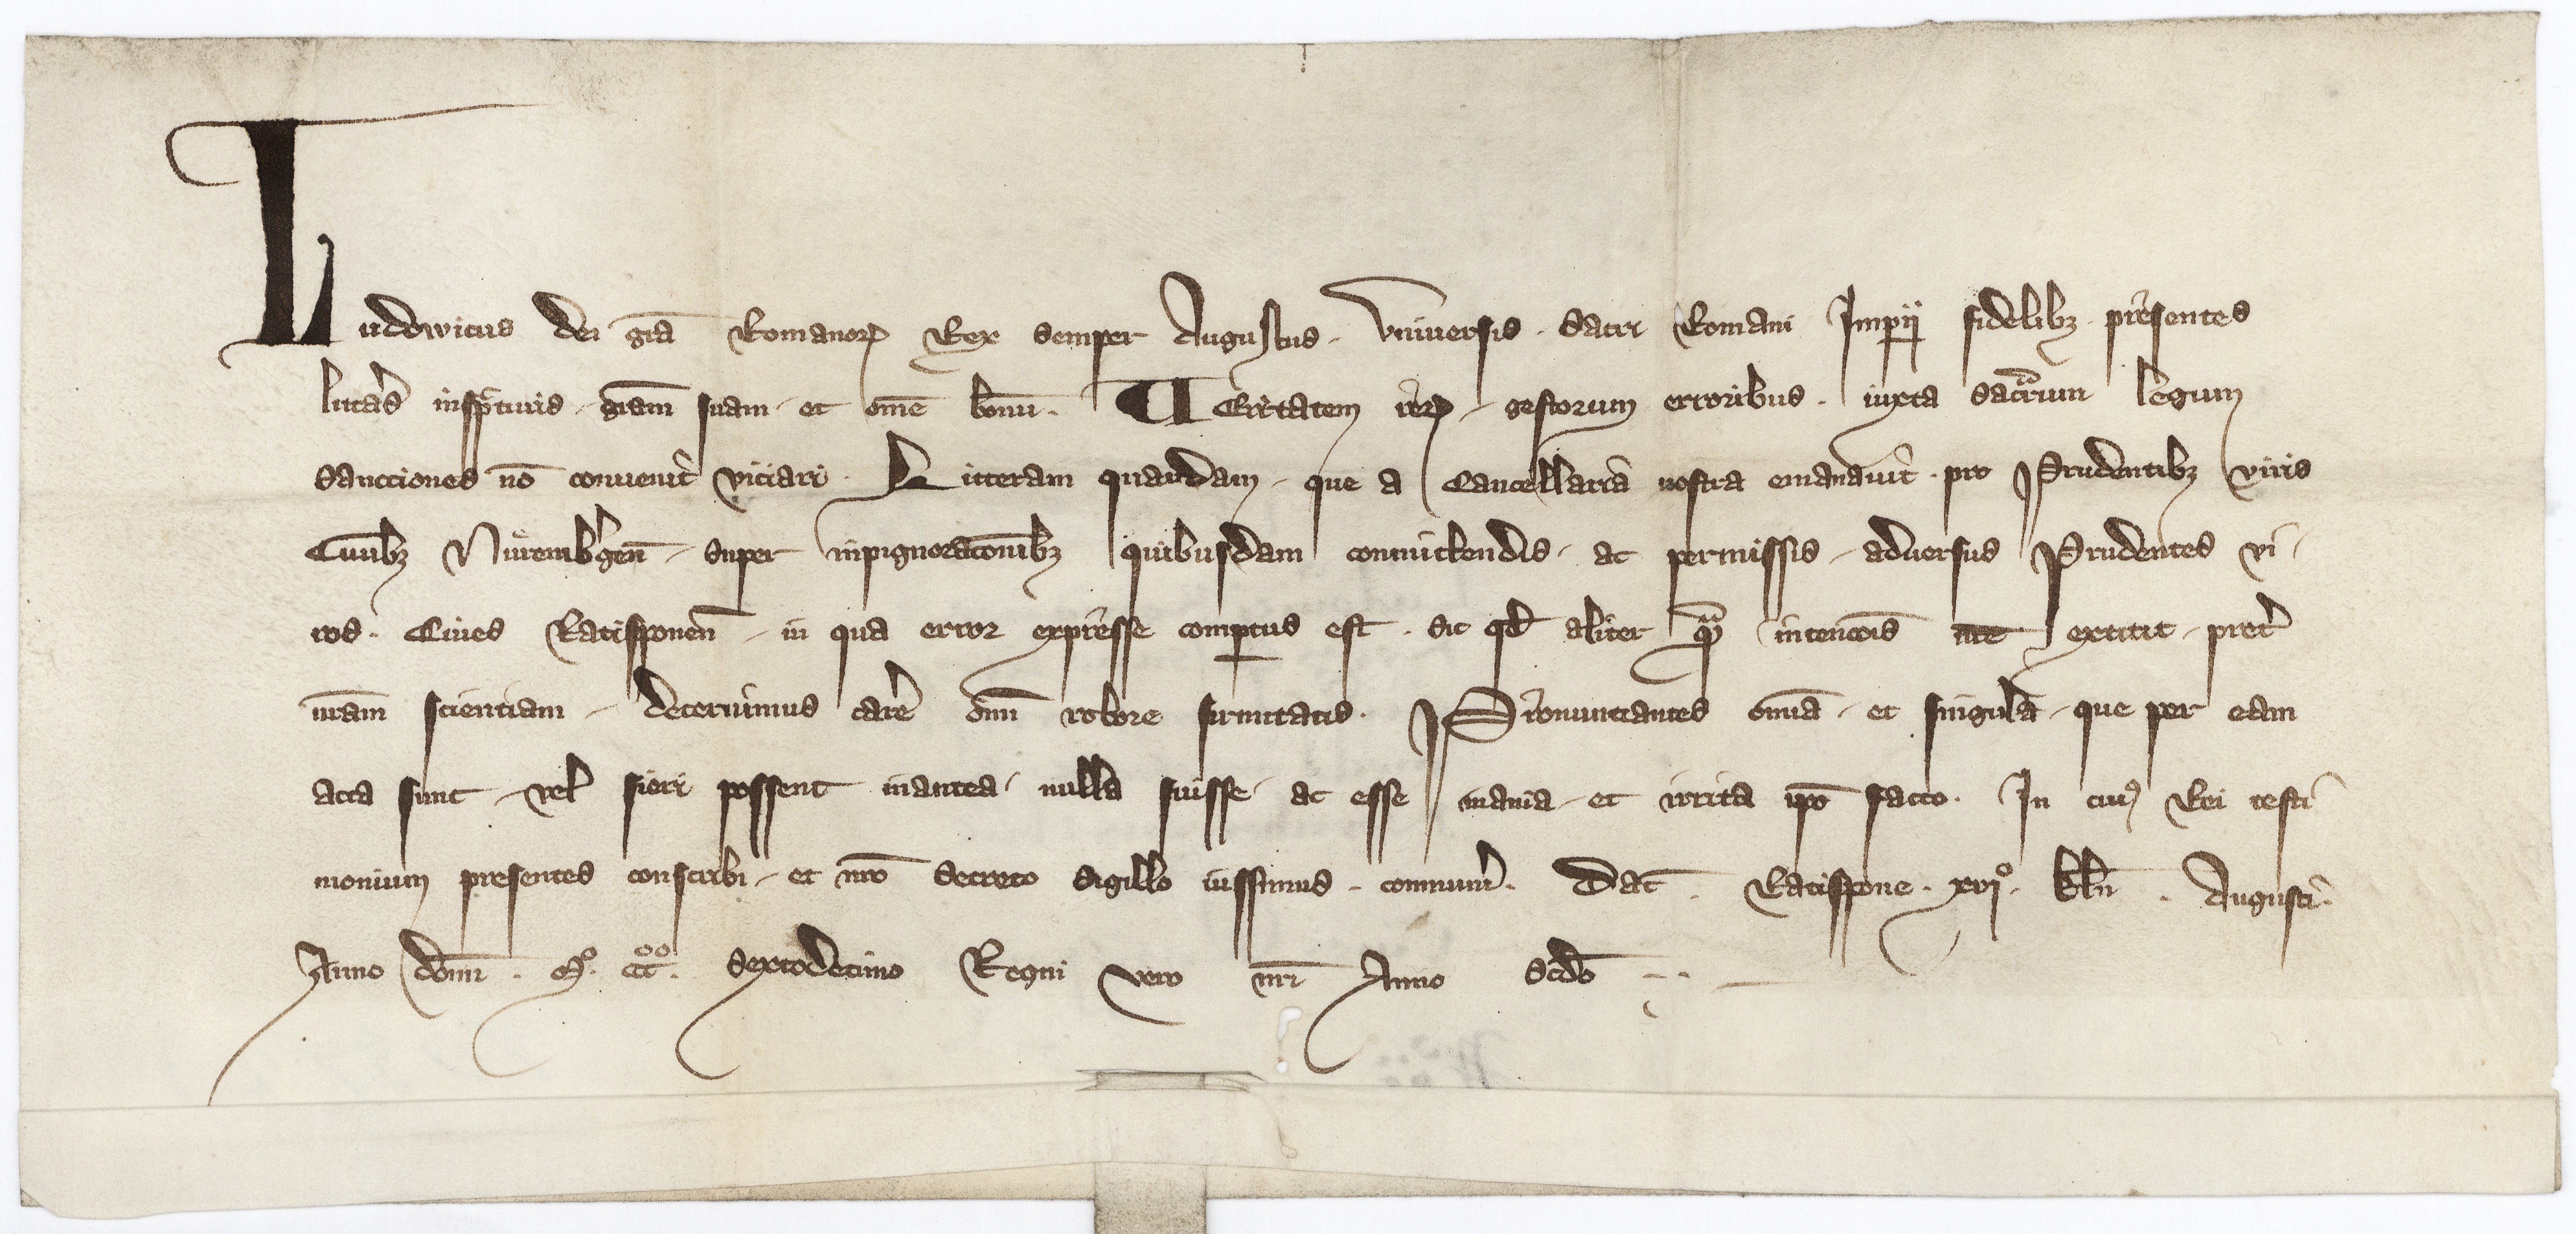 Ludowicus dei gr̅a Romanoꝝ Rex semper Augustus. Vniuersis. Sacri Romani Imꝑij fidelibꝫ presentes
litt̛as insp̅cturis. gr̅am suam. et om̅e bonu̅. Ueritatem reꝝ. gestorum erroribus. iuxta sacrarum legum
sancciones no̅ conuenit viciari. Litteram quandam. que a Cancellaria nostra emanauit. pro Prudentibꝫ viris
Ciuibꝫ Nu̍remb̛gen̅. super inpignorac̅onibꝫ quibusdam committendis. ac permissis. aduersus Prudentes vi
ros. Ciues Ratisponen̅. in qua error expresse comꝑtus est. sic qd̛ aliter qᵃ̅ intenc̅ois nr̅e extitit. pret̛
nr̅am scientiam. decernimus car̛e om̅i robore firmitatis. Pronunctiantes om̅ia. et singula. que per eadm̅
acta sunt. vel fieri possent inantea. nulla fuisse. ac esse inania. et irrita ip̅o facto. In cuiꝰ Rei testi
monium presentes conscribi. et nr̅o secreto sigillo iussimus. communiri. Dat̅. Ratispone. xvijº. kl̅n. Augusti.
Anno dom̅i. Mº. cccºº. sextodecimo Regni vero nr̅i Anno sc̅do